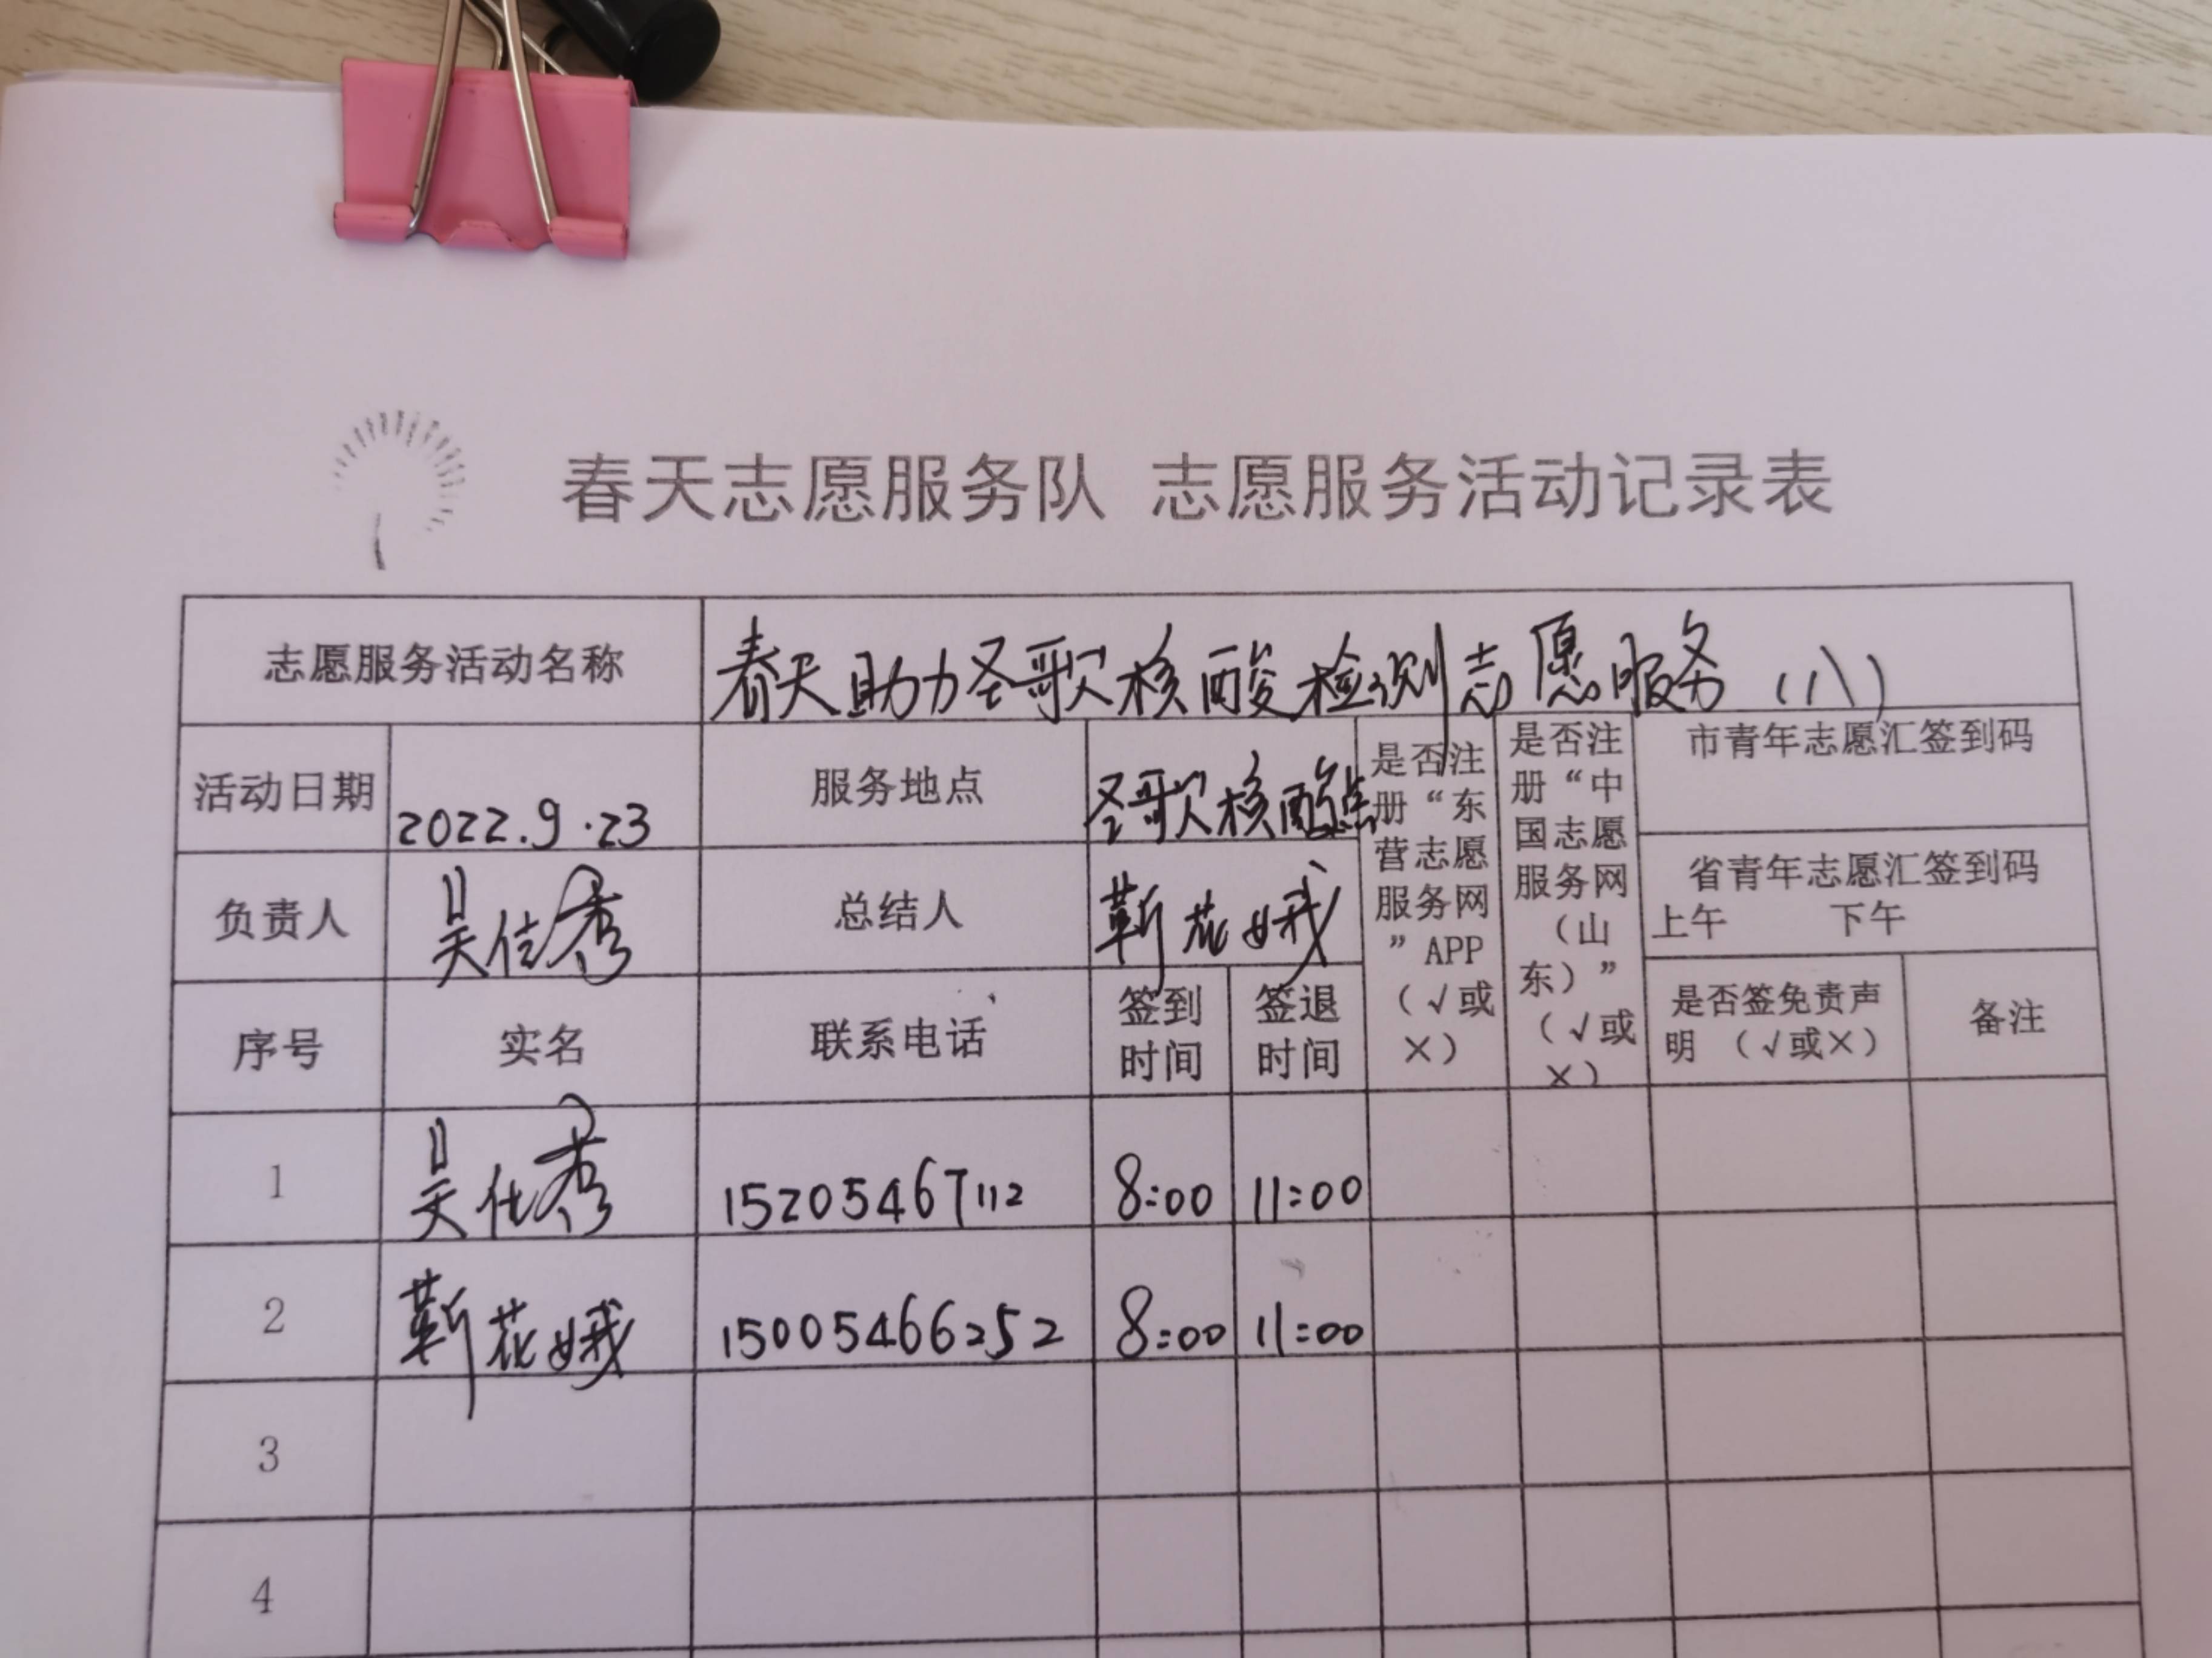 春天志愿服务队 志愿服务活动记录表
志愿服务活动名称 春天助力圣歌核酸检测志愿服务（八）
活动日期 2022.9.23 服务地点 圣歌核酸点
是否注册“东营志愿服务网”APP（√或×）
是否注册“中国志愿服务网（山东）”（√或×）
市青年志愿汇签到码
省青年志愿汇签到码
上午 下午
负责人 吴仕秀 总结人 靳花娥
序号 实名 联系电话 签到时间 签退时间 是否签免责声明（√或×） 备注
1 吴仕秀 15205467112 8:00 11:00
2 靳花娥 15005466252 8:00 11:00
3
4